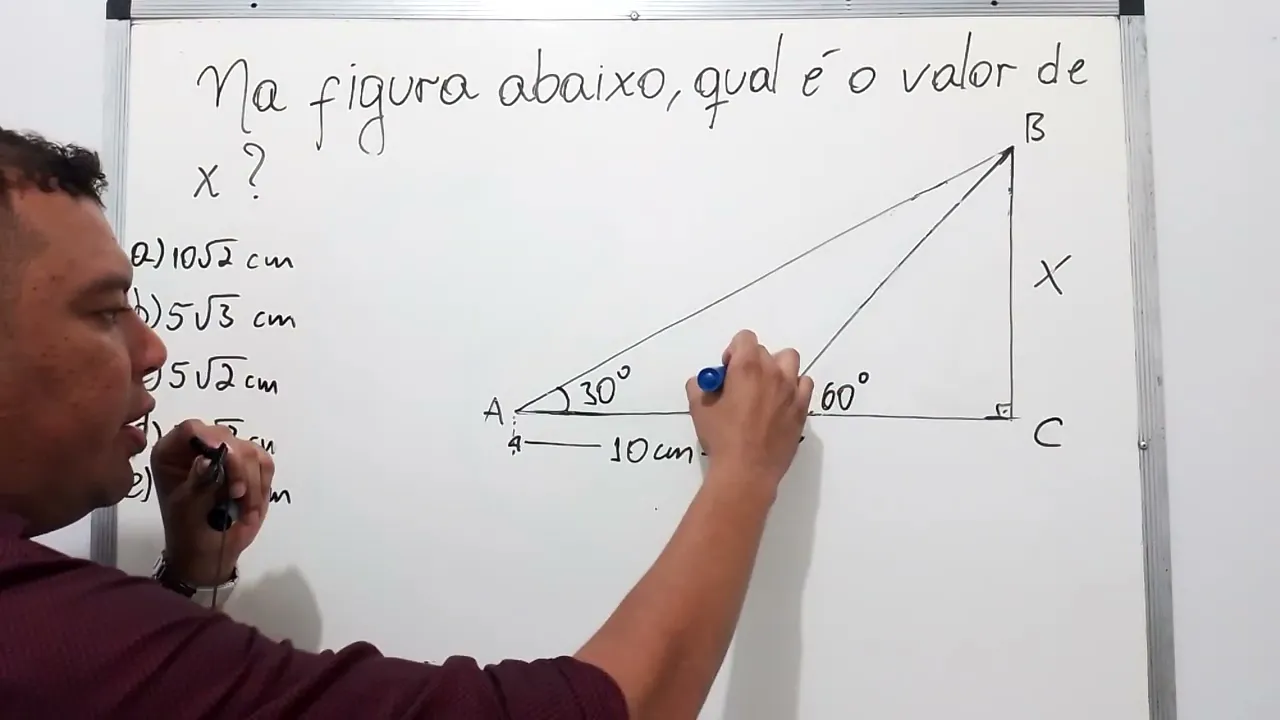 Na figura abaixo, qual é o valor de
x ?
a) 10√2 cm
b) 5√3 cm
) 5√2 cm
e)
B
X
30°
60°
A
C
10 cm